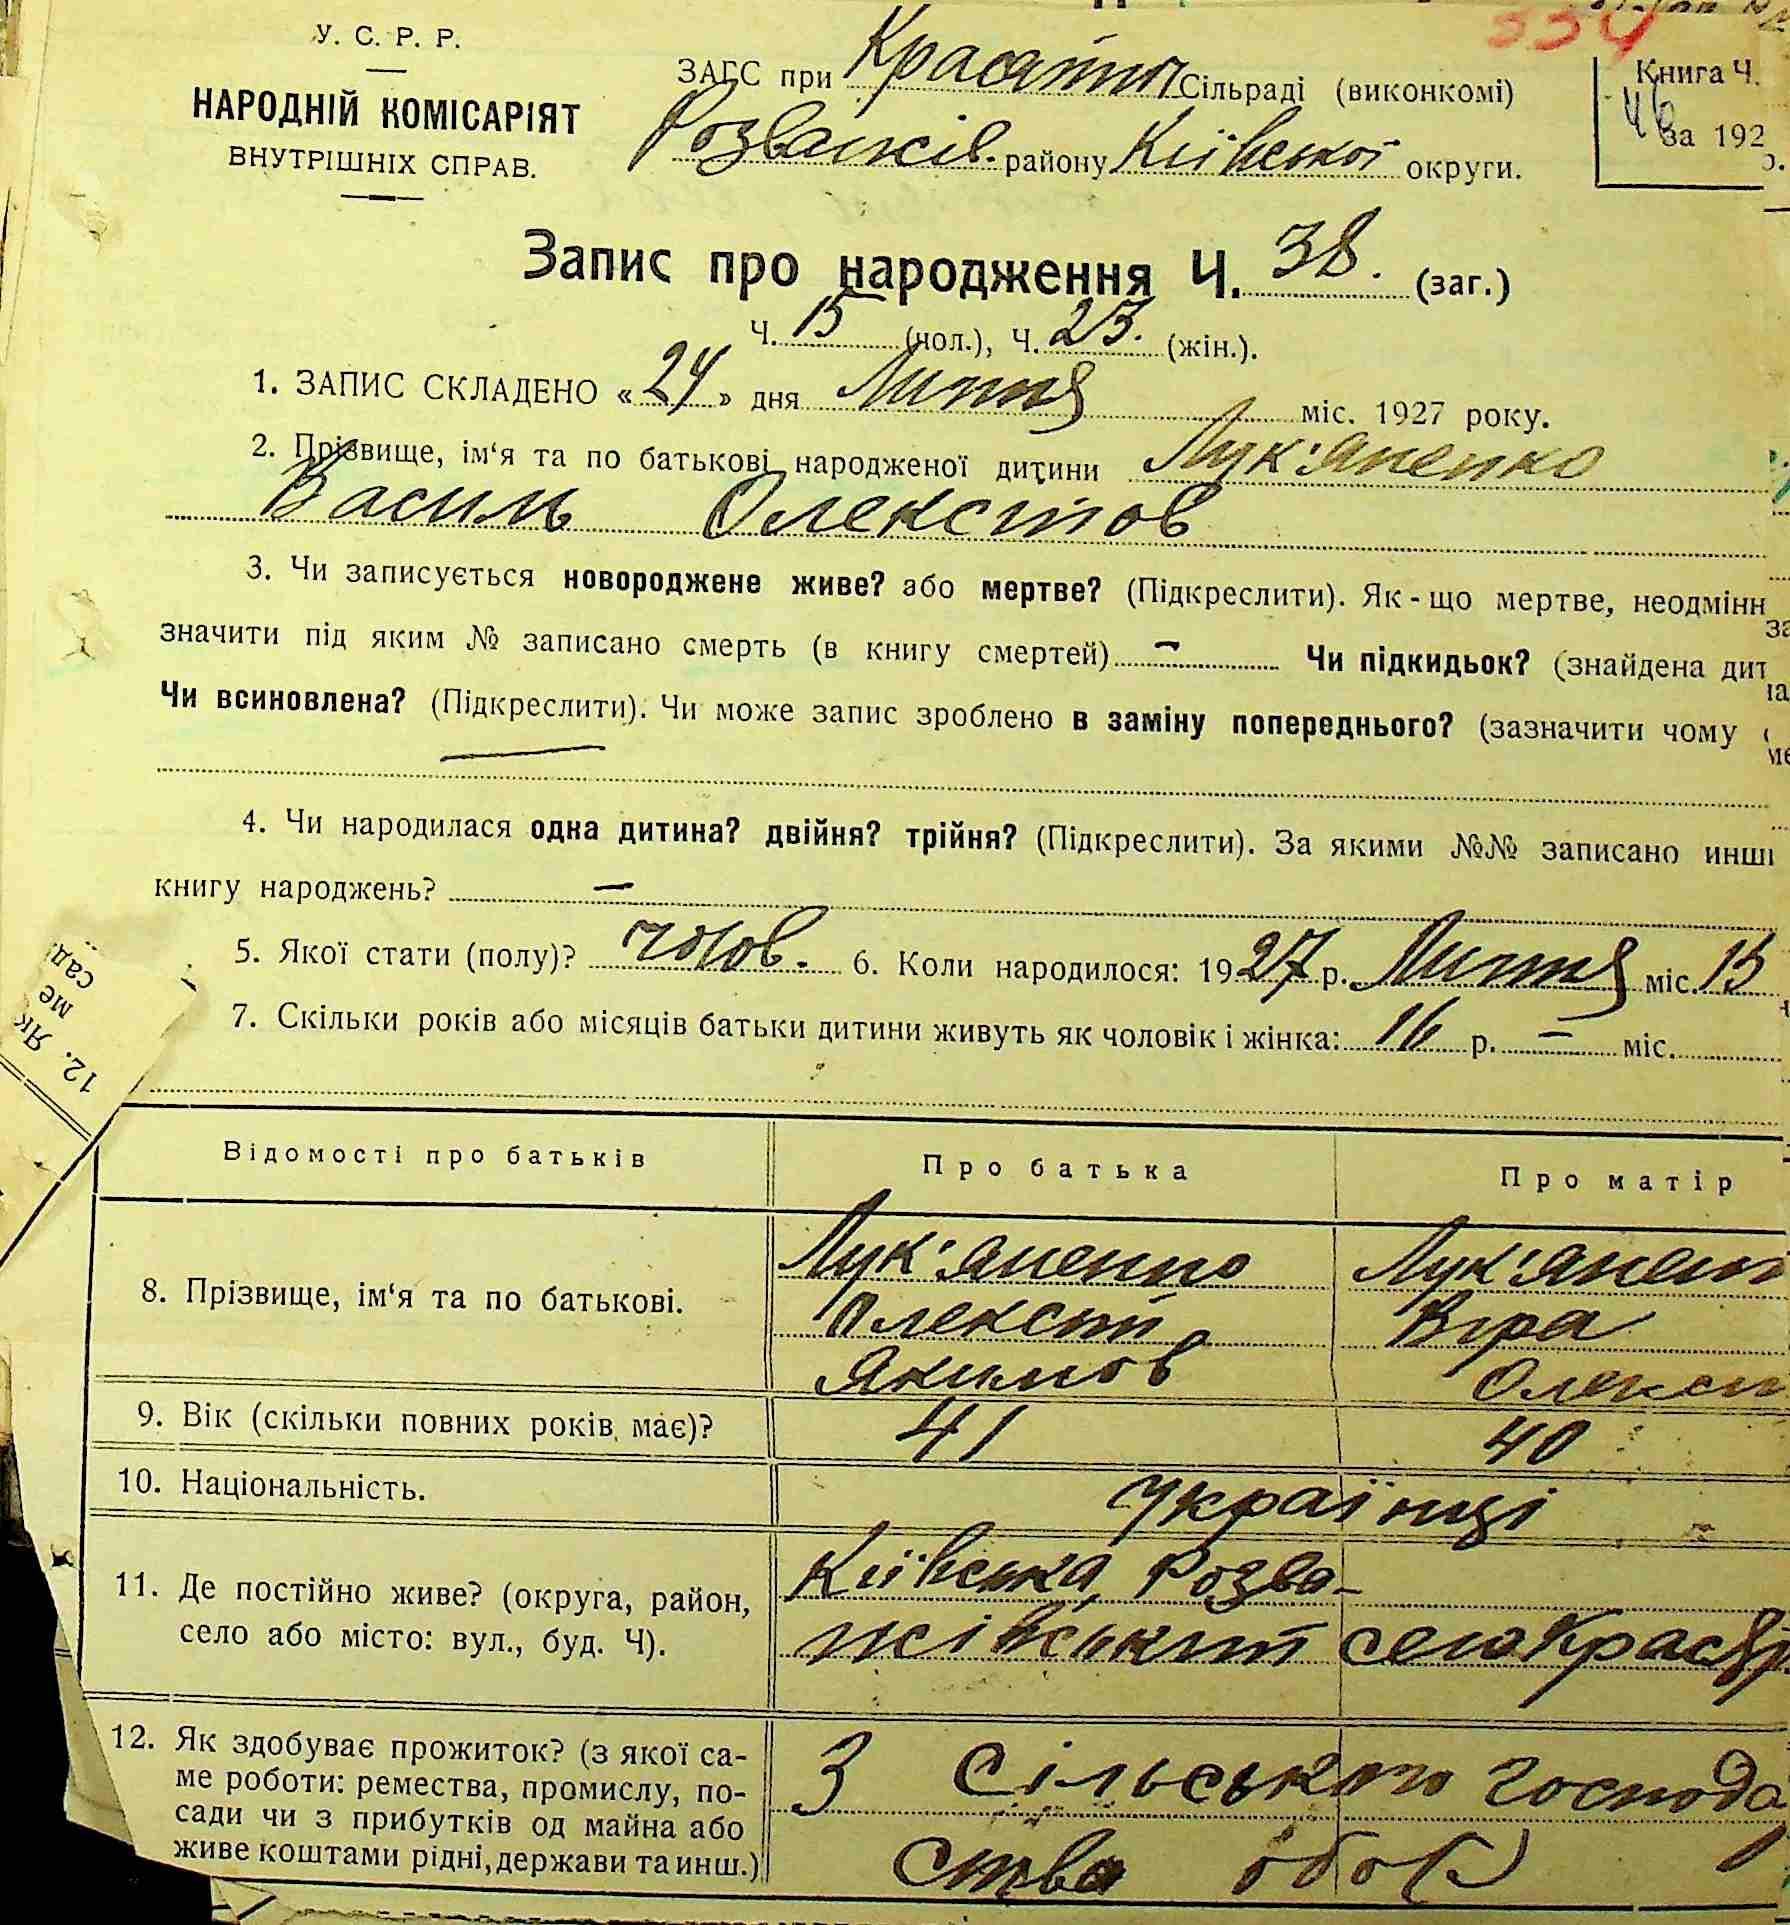 У. С. Р. Р.
НАРОДНІЙ КОМІСАРІЯТ
ВНУТРІШНІХ СПРАВ.
ЗАГС при Красятич Сільраді (виконкомі)
Розважів. району Київської округи.
334
Книга Ч.
46
за 192
Запис про народження Ч. 38. (заг.)
Ч. 15 (чол.), Ч. 23. (жін.).
1. ЗАПИС СКЛАДЕНО «24» дня Липня міс. 1927 року.
2. Прізвище, ім‘я та по батькові народженої дитини Лук'яненко
Василь Олексіїов
3. Чи записується новороджене живе? або мертве? (Підкреслити). Як-що мертве, неодмінн
значити під яким № записано смерть (в книгу смертей) – Чи підкидьок? (знайдена дит
Чи всиновлена? (Підкреслити). Чи може запис зроблено в заміну попереднього? (зазначити чому
4. Чи народилася одна дитина? двійня? трійня? (Підкреслити). За якими №№ записано инші
книгу народжень? –
5. Якої стати (полу)? чолов. 6. Коли народилося: 1927 р. Липня міс. 15
7. Скільки років або місяців батьки дитини живуть як чоловік і жінка: 16 р. – міс.
Відомості про батьків Про батька Про матір
8. Прізвище, ім‘я та по батькові.
Лук'яненко Лук'янен
Олексій Віра
Якимов Олекси
9. Вік (скільки повних років має)? 41 40
10. Національність. Українці
11. Де постійно живе? (округа, район,
село або місто: вул., буд. Ч).
Київська, Розва-
жівський село Крася
12. Як здобуває прожиток? (з якої са-
ме роботи: ремества, промислу, по-
сади чи з прибутків од майна або
живе коштами рідні, держави та инш.)
З сільського господа
ства обоє
12. Як
ме
сад